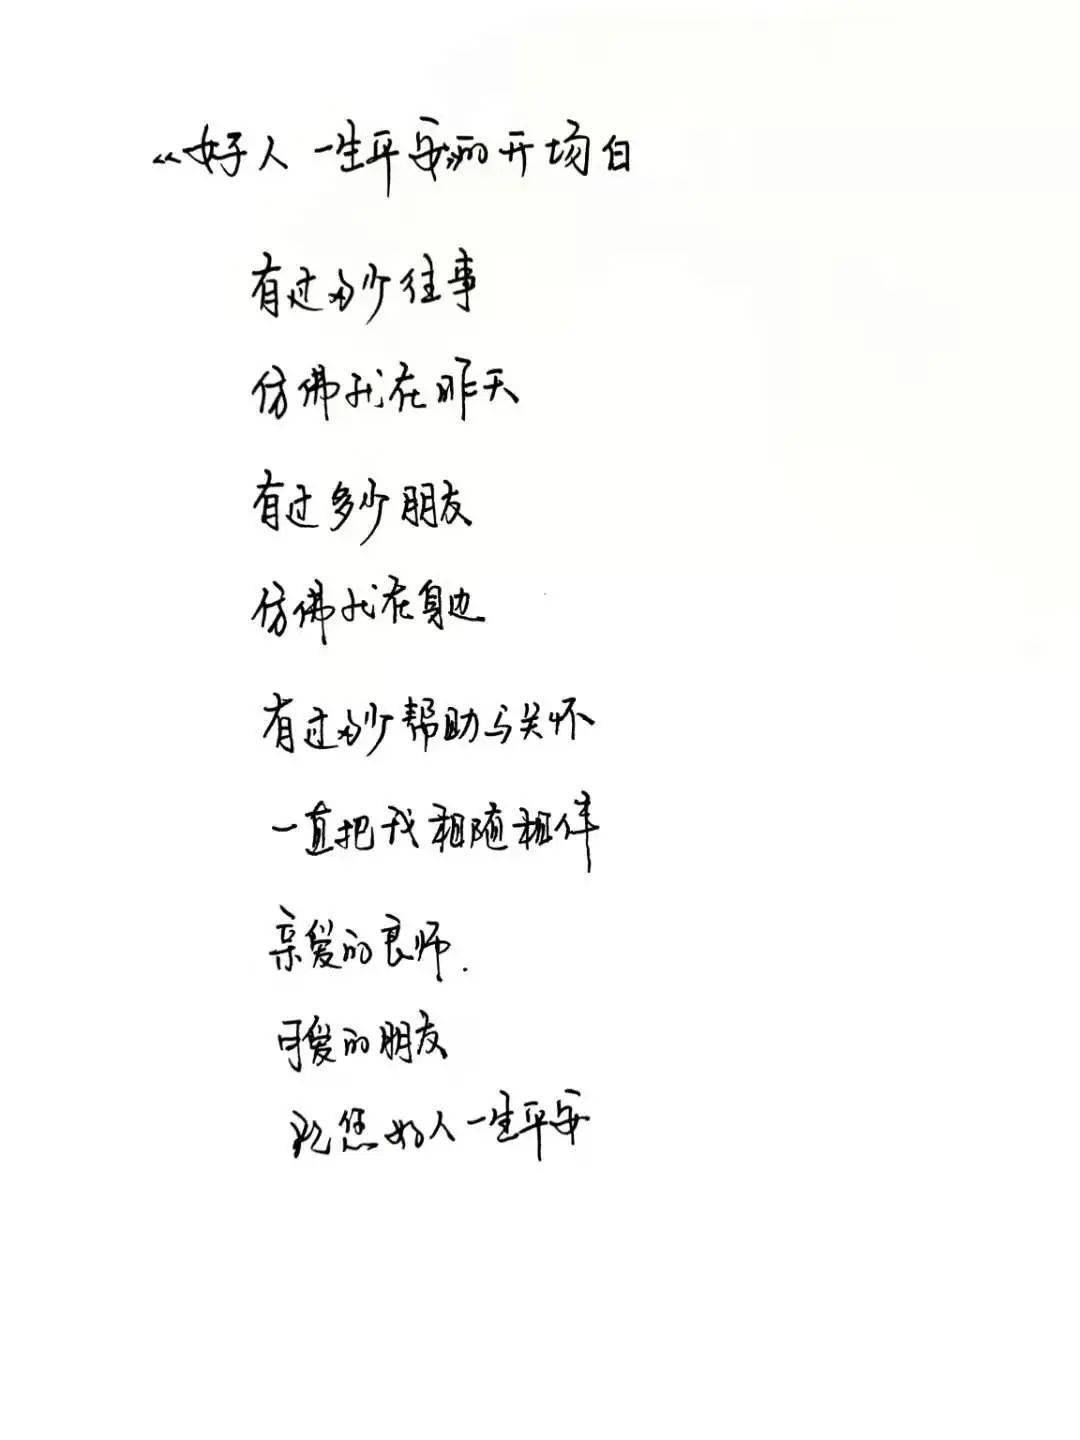 《好人一生平安》的开场白
有过多少往事
仿佛我在昨天
有过多少朋友
仿佛我在身边
有过多少帮助与关怀
一直把我相随相伴
亲爱的良师.
可爱的朋友
祝您好人一生平安